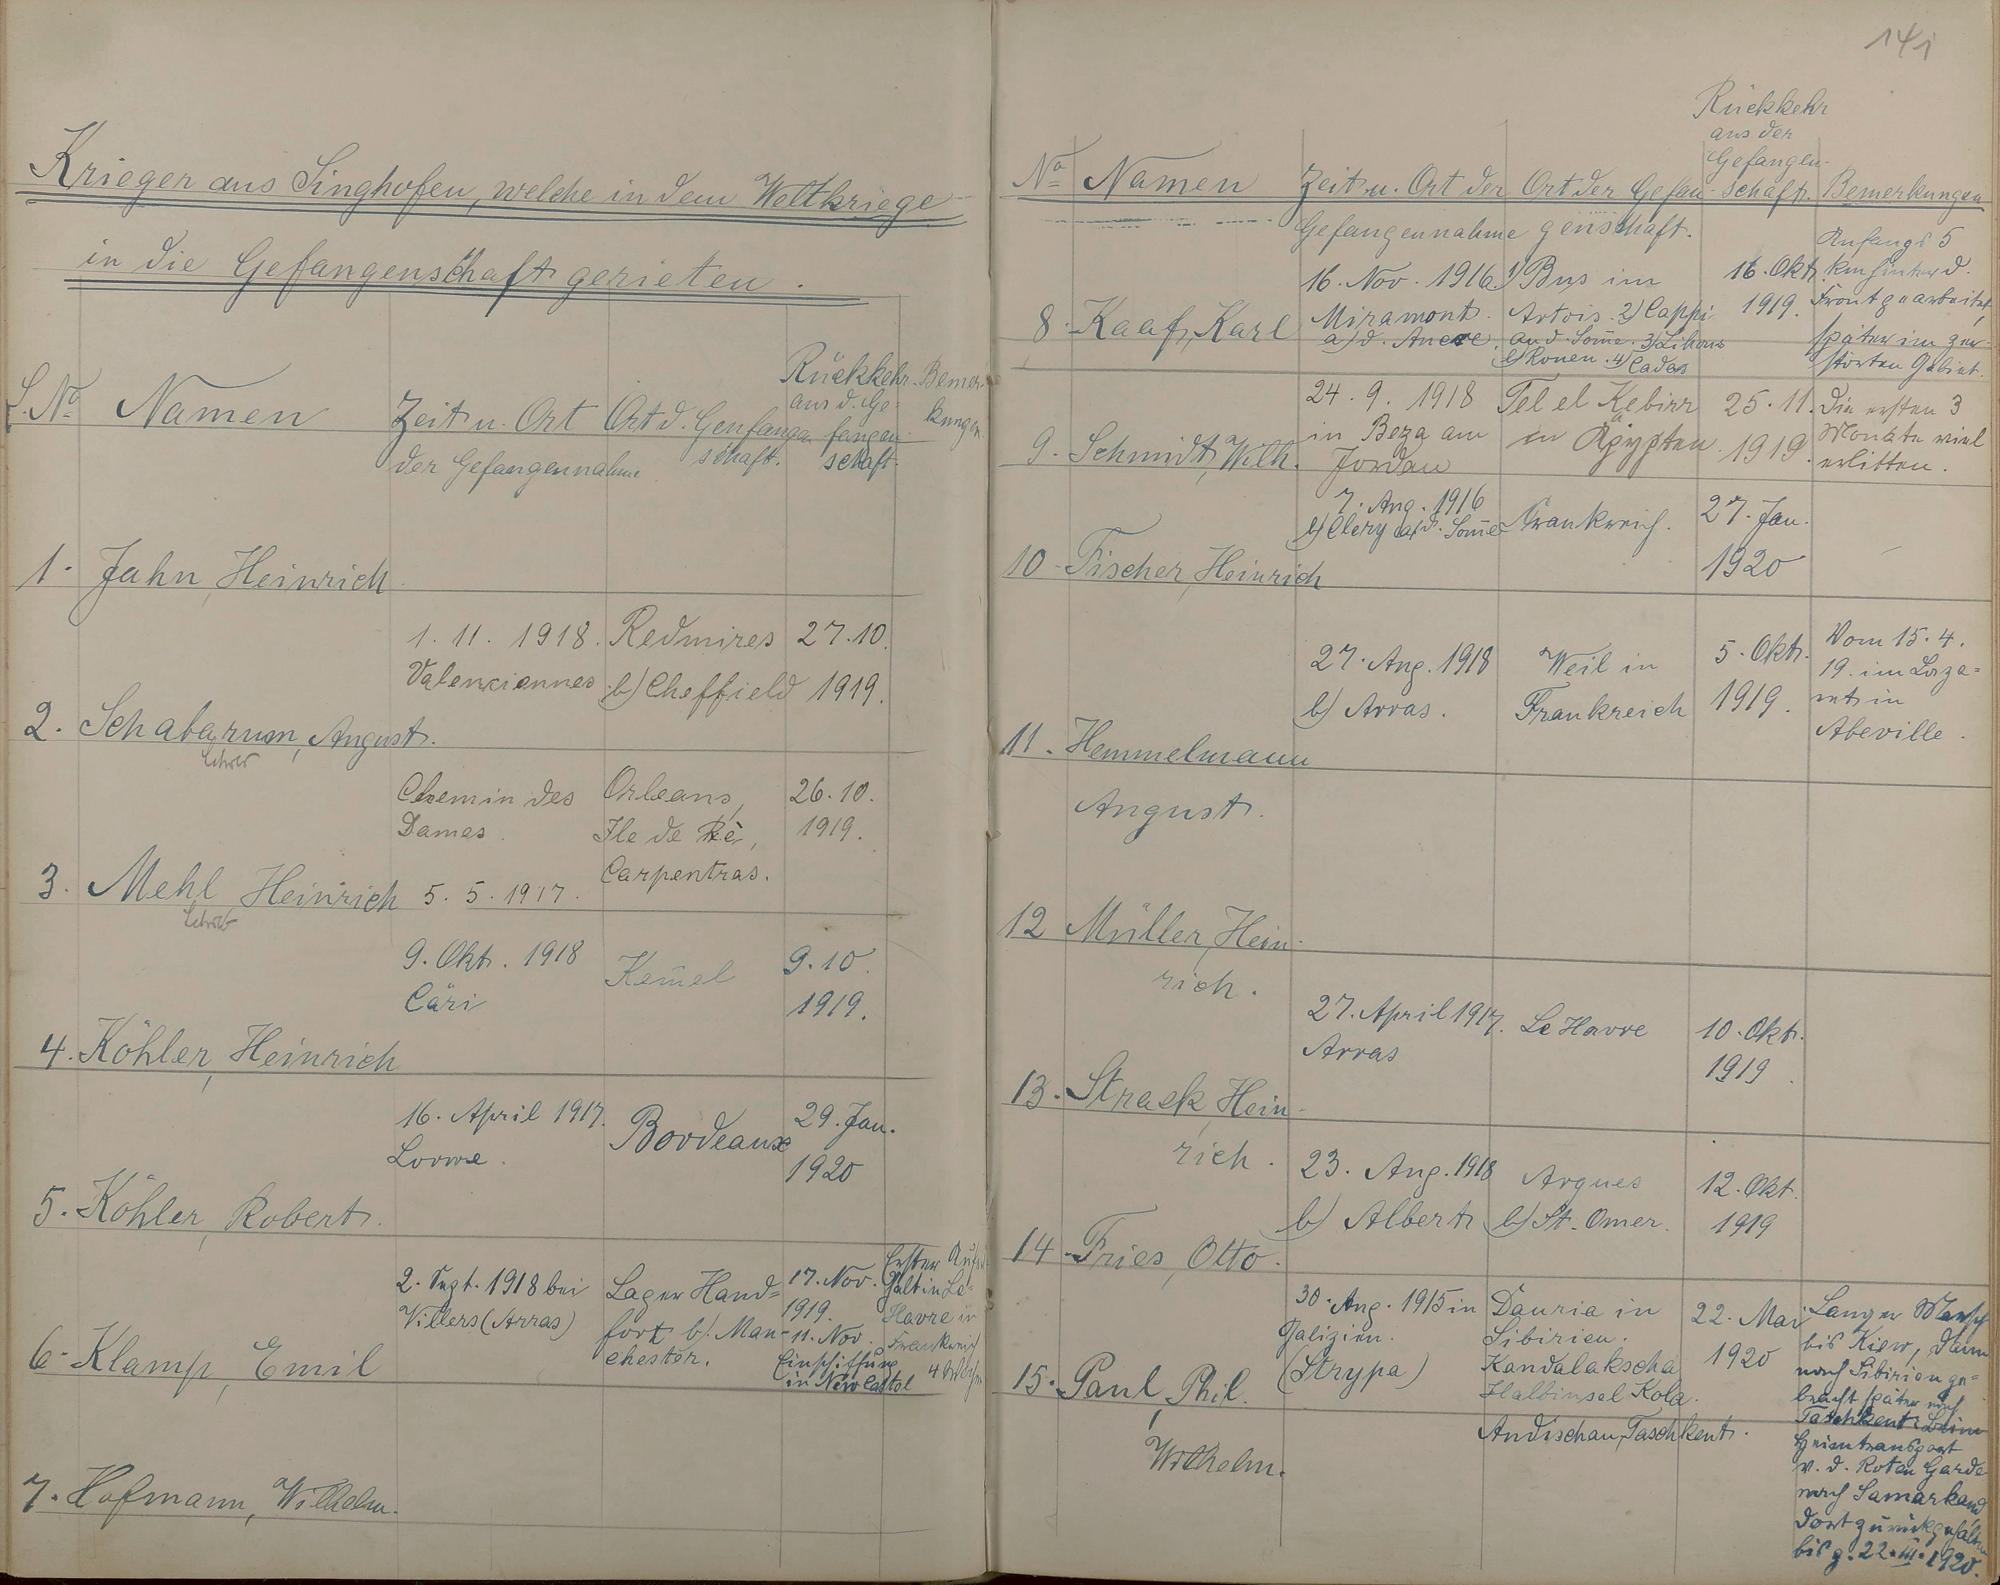 Krieger aus Singhofen, welche in dem Weltkriege
in die Gefangenschaft gerieten.
L. No Namen Zeit u. Ort der Gefangennahme Ort d. Genfangenschaft. Rückkehr aus d. Gefangenschaft. Bemerkungen
1. Jahn, Heinrich
1. 11. 1918. Redmires 27.10.
Valenciennes b/ Cheffield 1919.
2. Schabarum, August.
Lehrer
Chemin des Orleans, 26.10.
Dames. Ile de Ré, 1919.
Carpentras.
3. Mehl Heinrich 5. 5. 1917.
Lehrer
9. Okt. 1918 Kem̄el 9.10.
Cäri 1919.
4. Köhler, Heinrich
16. April 1917. Bordeaux 29. Jan.
1920
5. Köhler, Robert.
2. Sept. 1918 bei Lager Hand= 17. Nov. Erster Auf
Villers (Arras) fort b/. Man- 1919. halt in Le-
chester. 11. Nov. Havre in
Einschiffung Frankreich
in New Castel 4 Wochen
6. Klamp, Emil
7. Hofmann, Wilhelm.
141
No Namen Zeit u. Ort der Gefangennahme Ort der Gefangenschaft. Rückkehr aus der Gefangenschaft. Bemerkungen
16. Nov. 1916 1) Bus im 16. Okt. Anfangs 5
Miramont Artois. 2) Cappi 1919. km hinter d.
a/d. Ancre. an d. Som̄e. 3) Lihons Front gearbeitet,
b/ Rouen. 4) später im zer-
störten Gebiet.
8. Kaaf, Karl
24. 9. 1918 Tel el Kebirr 25. 11. Die ersten 3
in Beza am in Ägypten. 1919. Monate viel
Jordan erlitten.
9. Schmidt, Wilh.
7. Aug. 1916 Frankreich. 27. Jan.
b/ Clery a/d. Som̄e 1920
10. Fischer, Heinrich
27. Aug. 1918 Weil in 5. Okt. Vom 15. 4.
b/ Arras. Frankreich 1919. 19. im Laza=
rett in
Abeville.
11. Hemmelmann
August.
12 Müller, Hein-
rich.
27. April 1917. Le Havre 10. Okt.
Arras 1919.
13. Strack, Hein-
rich.
23. Aug. 1918 Arques 12. Okt.
b/ Albert b/ St. Omer. 1919
14. Fries, Otto.
30. Aug. 1915 in Dauria in 22. Mai Langer Marsch
Galizien. Sibirien. 1920 bis Kiew, dann
(Strypa) Kandalakscha nach Sibirien ge=
Halbinsel Kola. bracht später nach
Andischan, Taschkent. Taschkent. Beim
Heimtransport
v. d. Roten Garde
nach Samarkand
dort zurückgehalten
bis z. 22. III. 1920.
15. Paul, Phil.
Wilhelm.